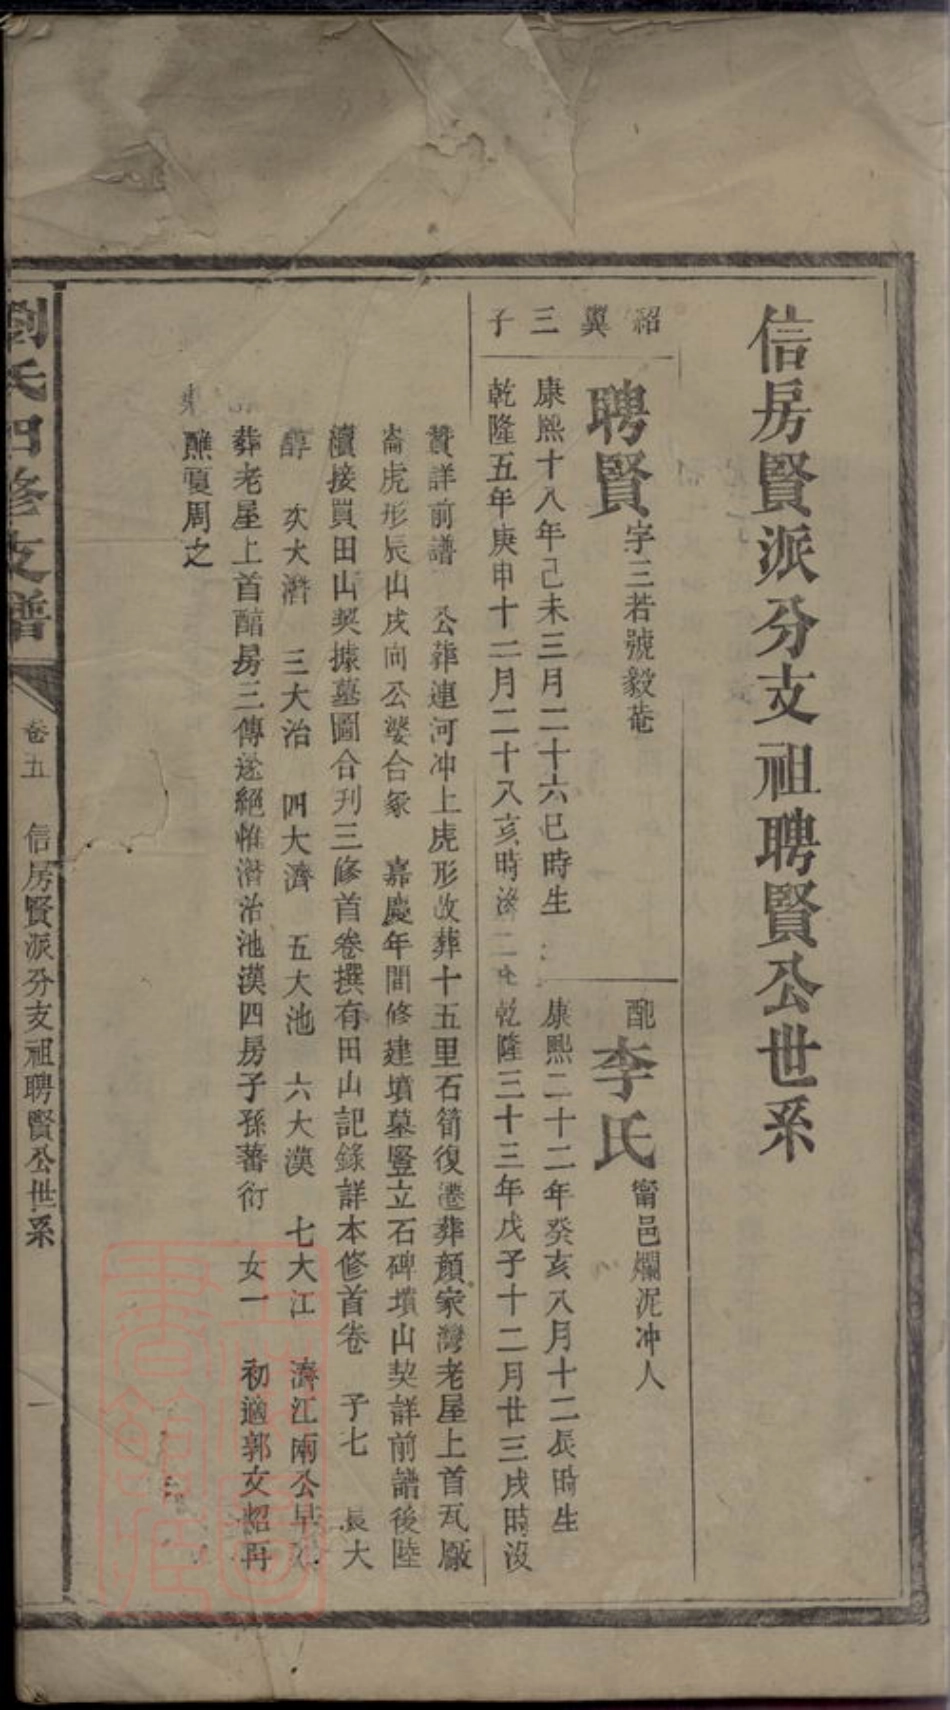 信房賢派分支祖聘賢公世系
紹翼三子
聘賢字三若號毅菴
康熙十八年己未三月二十六巳時生
乾隆五年庚申十二月二十八亥時沒
配李氏甯邑爛泥冲人
康熙二十二年癸亥八月十二辰時生
乾隆三十三年戊子十二月廿三戌時沒
贊詳前譜　公葬連河冲上虎形改葬十五里石筍復遷葬顏家灣老屋上首瓦廠
崙虎形辰山戌向公婆合冢　嘉慶年間修建墳墓豎立石碑墳山契詳前譜後陸
續接買田山契據墓圖合刊三修首卷撰有田山記錄詳本修首卷　子七　長大
醇　次大潛　三大治　四大濟　五大池　六大漢　七大江　濟江兩公早
葬老屋上首醕房三傳遂絕惟潛治池漢四房子孫蕃衍　女一　初適郭文炤再
醮夏周之
劉氏四修支譜
卷五　信房賢派分支祖聘賢公世系　一